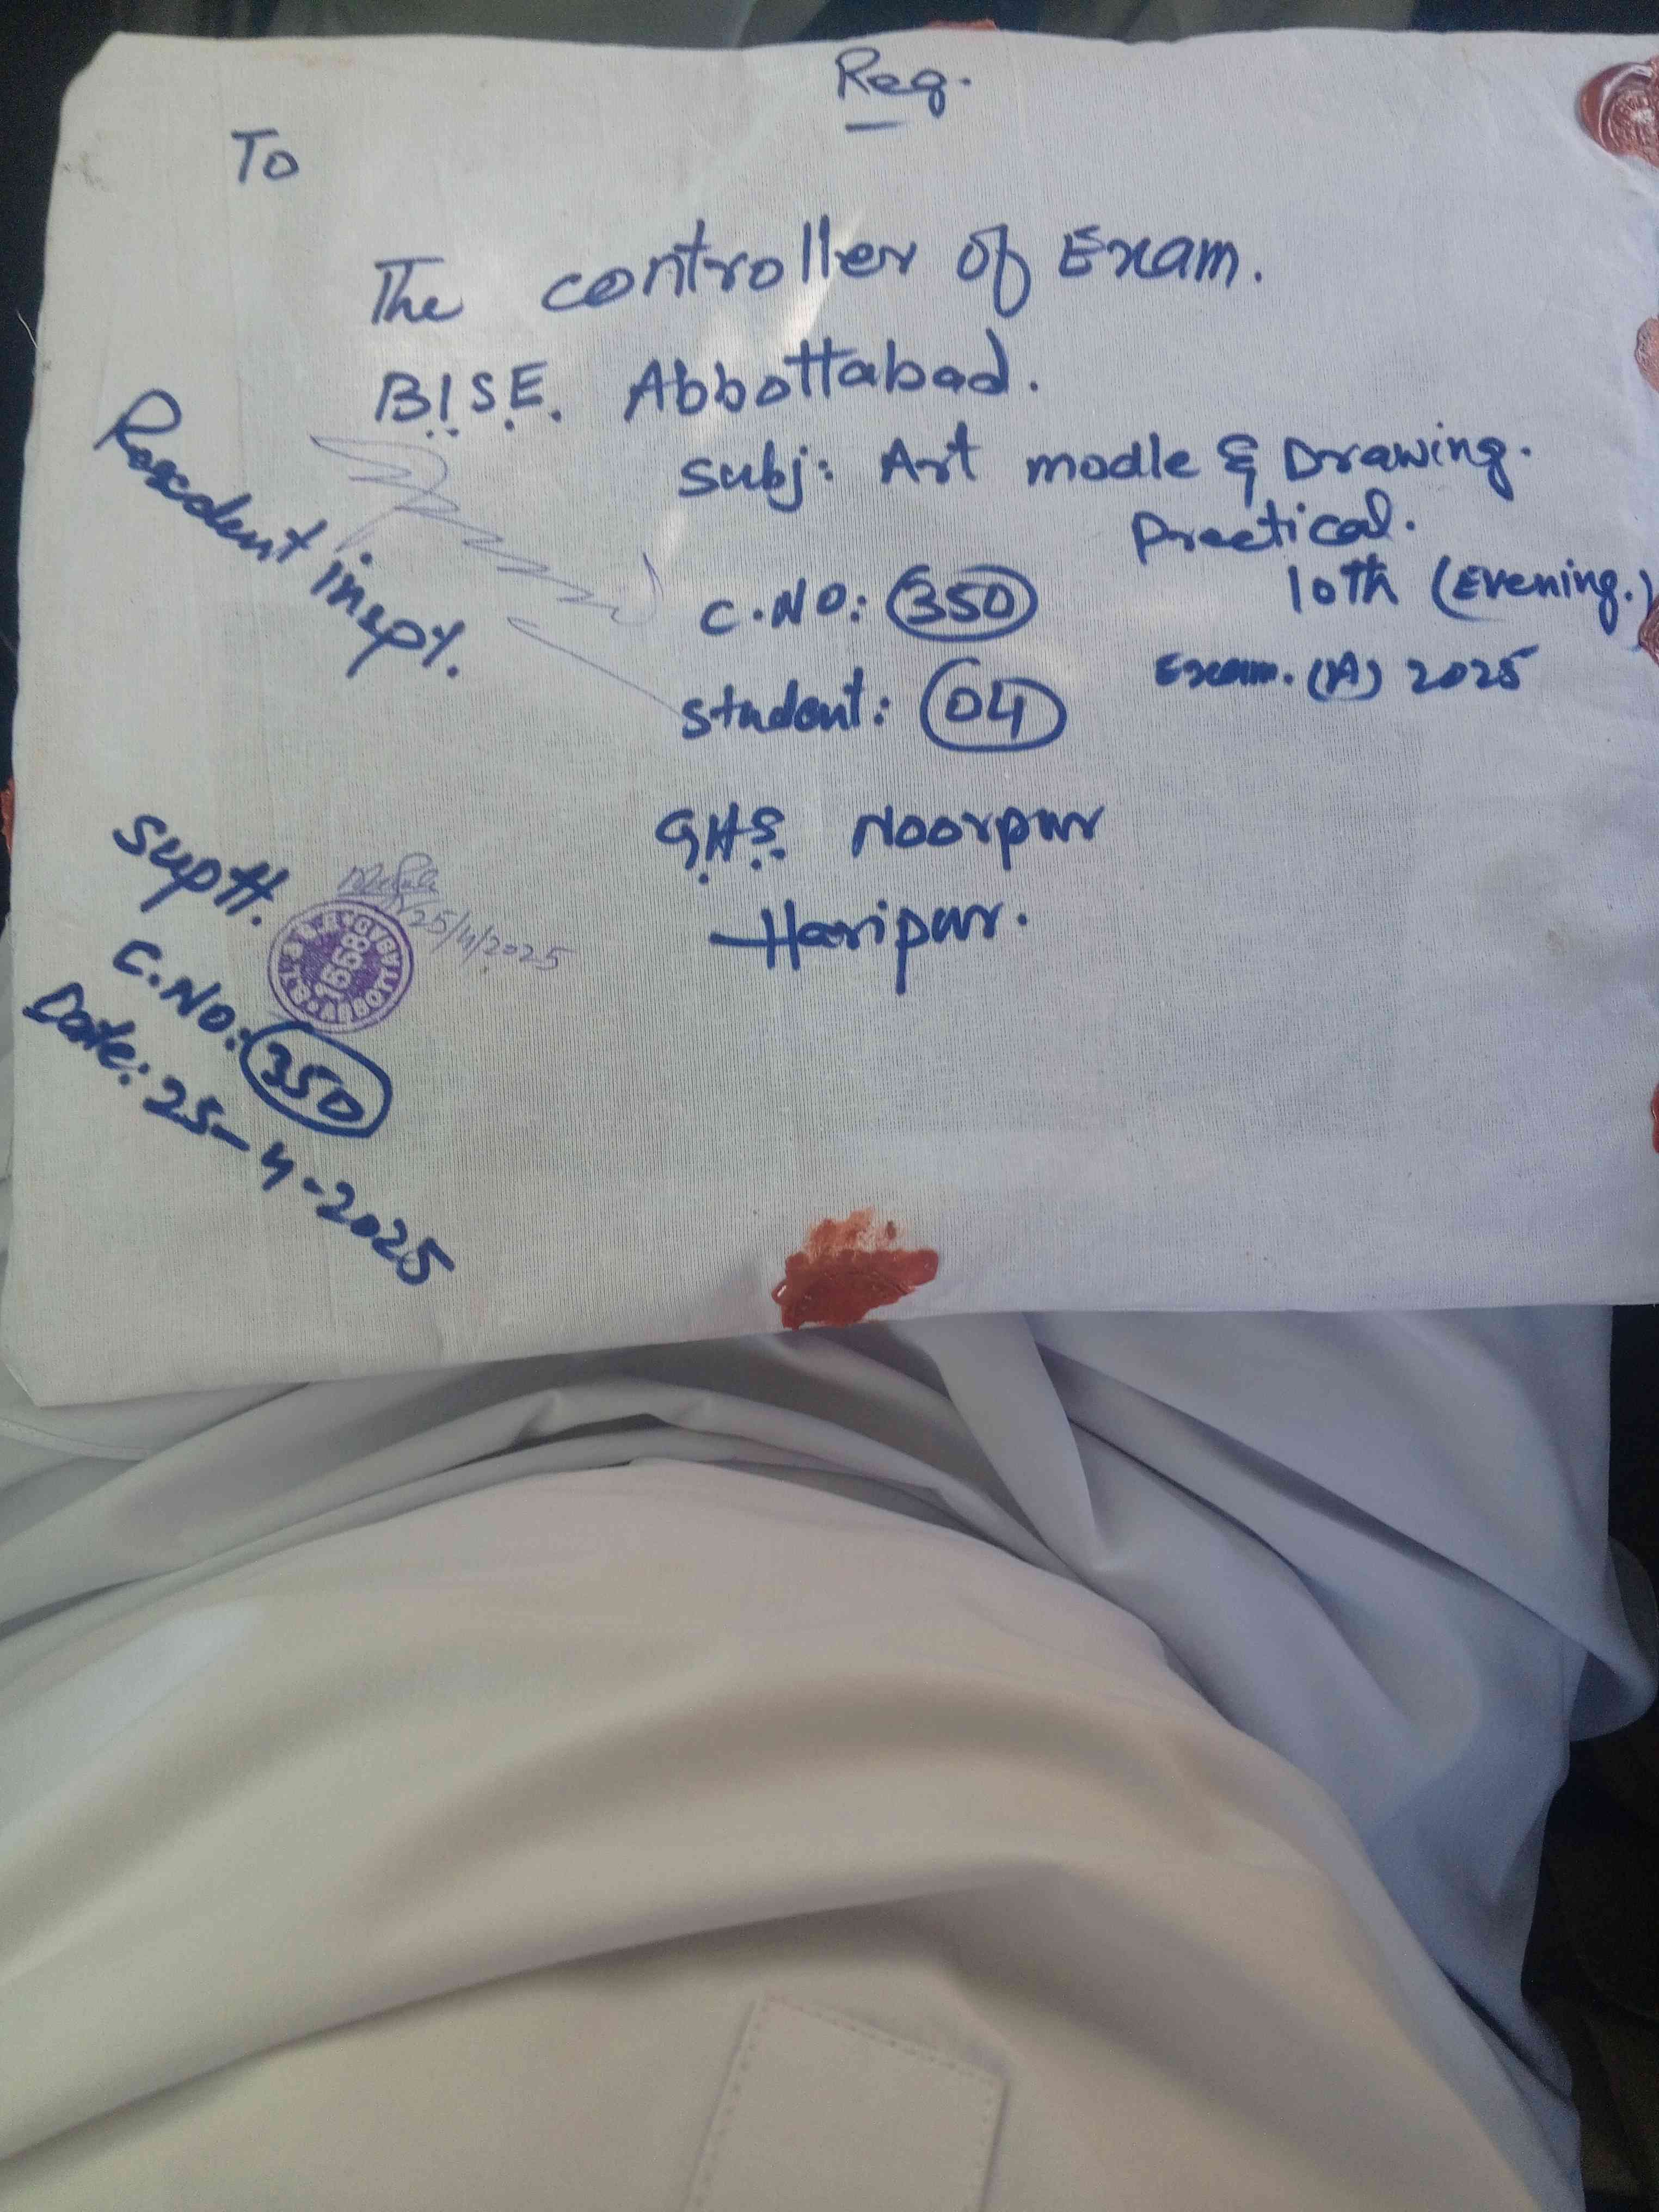 Reg.
To
The controller of Exam.
B.I.S.E. Abbottabad.
Subj: Art modle & Drawing.
Practical.
10th (Evening.)
C.NO: 350
Exam. (A) 2025
Student: 04
GHS Noorpur
Haripur.
Resedent inspt.
Suptt.
25/4/2025
1558
ABBOTTABAD
C.NO: 350
Date: 25-4-2025